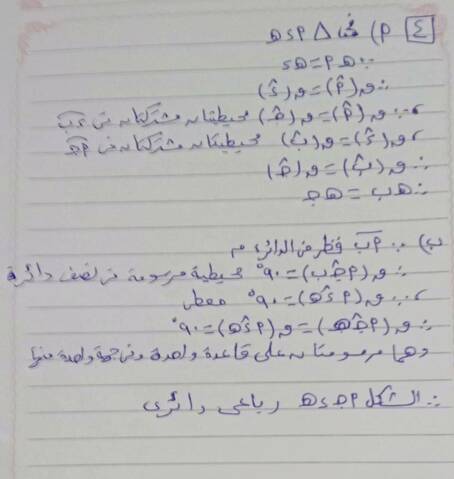 ٤ ا) فى △ ا د هـ
∵ هـ ا = هـ د
∴ ق(ا̂) = ق(د̂)
، ∵ ق(ا̂) = ق(جـ̂) محيطيتان مشتركتان فى د ب
، ق(د̂) = ق(ب̂) محيطيتان مشتركتان فى ا جـ
∴ ق(ب̂) = ق(جـ̂)
∴ هـ ب = هـ جـ
ب) ∵ ا ب قطر فى الدائرة م
∴ ق(ا جـ̂ ب) = ٩٠° محيطية مرسومة فى نصف دائرة
، ∵ ق(ا د̂ هـ) = ٩٠° معطى
∴ ق(ا جـ̂ هـ) = ق(ا د̂ هـ) = ٩٠°
وهما مرسومتان على قاعدة واحدة وفى جهة واحدة منها
∴ الشكل ا جـ د هـ رباعى دائرى